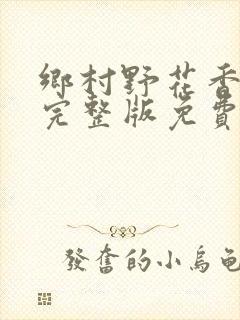 鄉村野花香
完整版免費
發奮的小烏龜